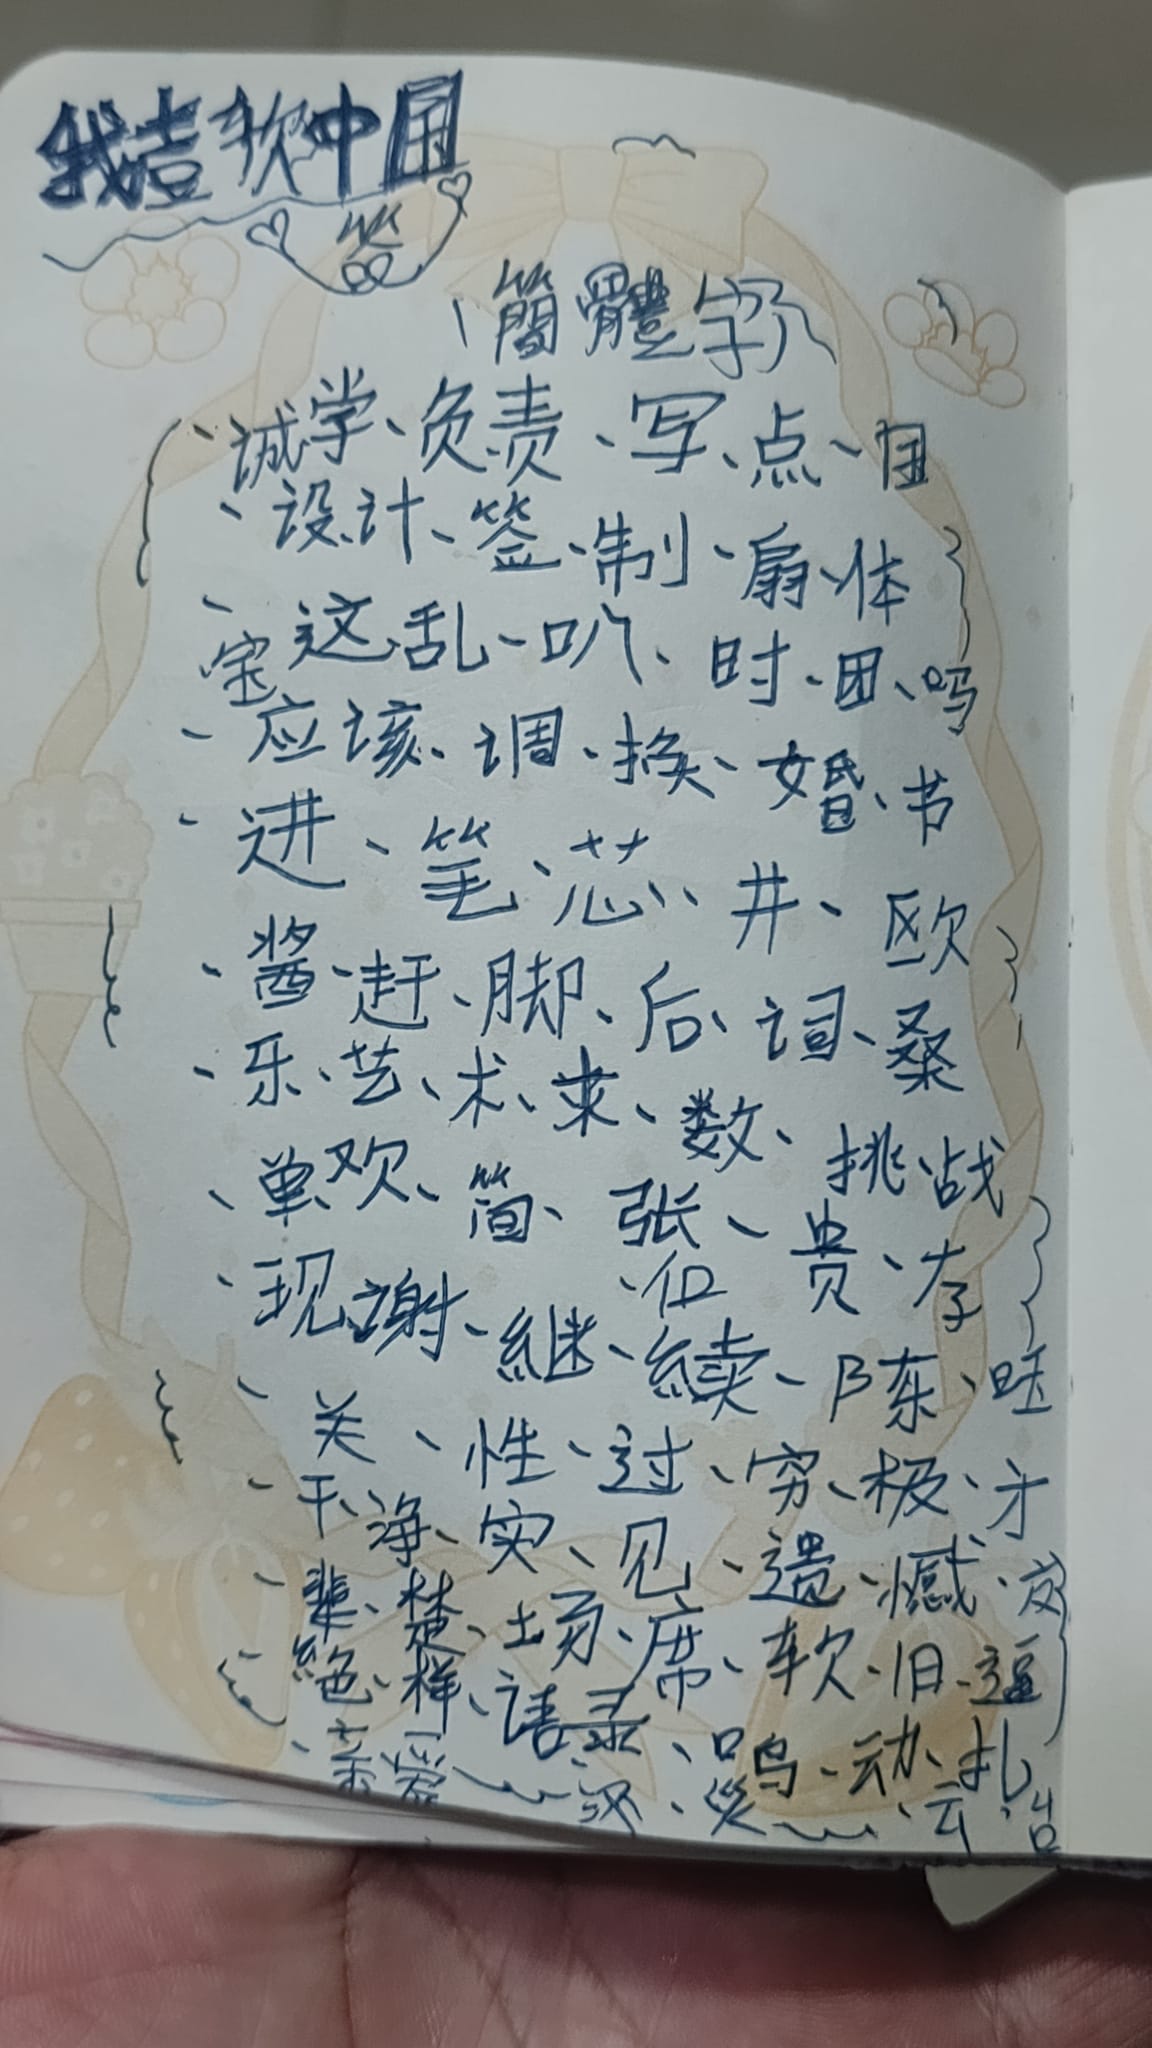 我喜欢中国
簡體字
、诚学、负责、写、点、国
、设计、签、制、扇、体
、这、乱、叭、时、团、吗
宝
、应该、调、换、婚、书
、进、笔、芯、井、欧
、酱、赶、脚、后、词、桑
、乐、艺、术、来、数、挑战
、单、欢、简、张、贵、存
、现、谢、继、续、陈、旺
关、性、过、穷、极、才
、干、净、实、见、遗、憾
、辈、楚、场、席、软、旧、逼
絕、样、语录、哭、鸣、动、扎
云